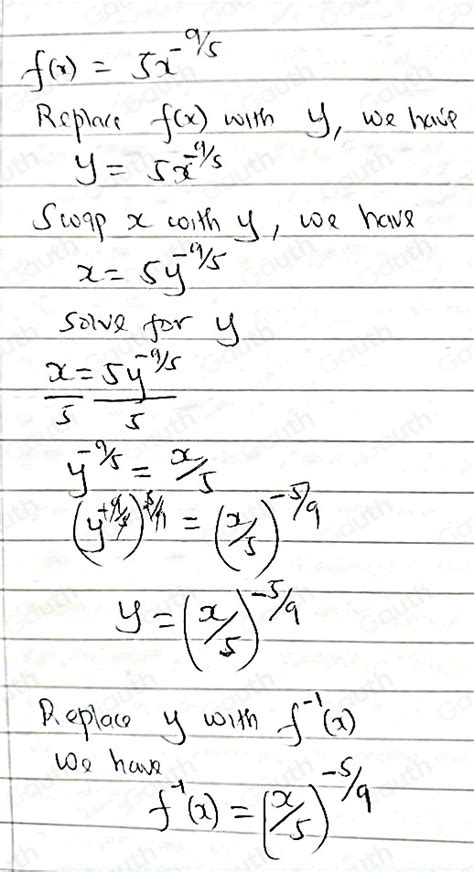 f(x) = 5x^-9/5
Replace f(x) with y, we have
y = 5x^-9/5
Swap x with y, we have
x = 5y^-9/5
solve for y
x/5 = 5y^-9/5/5
y^-9/5 = x/5
(y^+9/5)^5/9 = (x/5)^-5/9
y = (x/5)^-5/9
Replace y with f^-1(x)
we have
f^-1(x) = (x/5)^-5/9